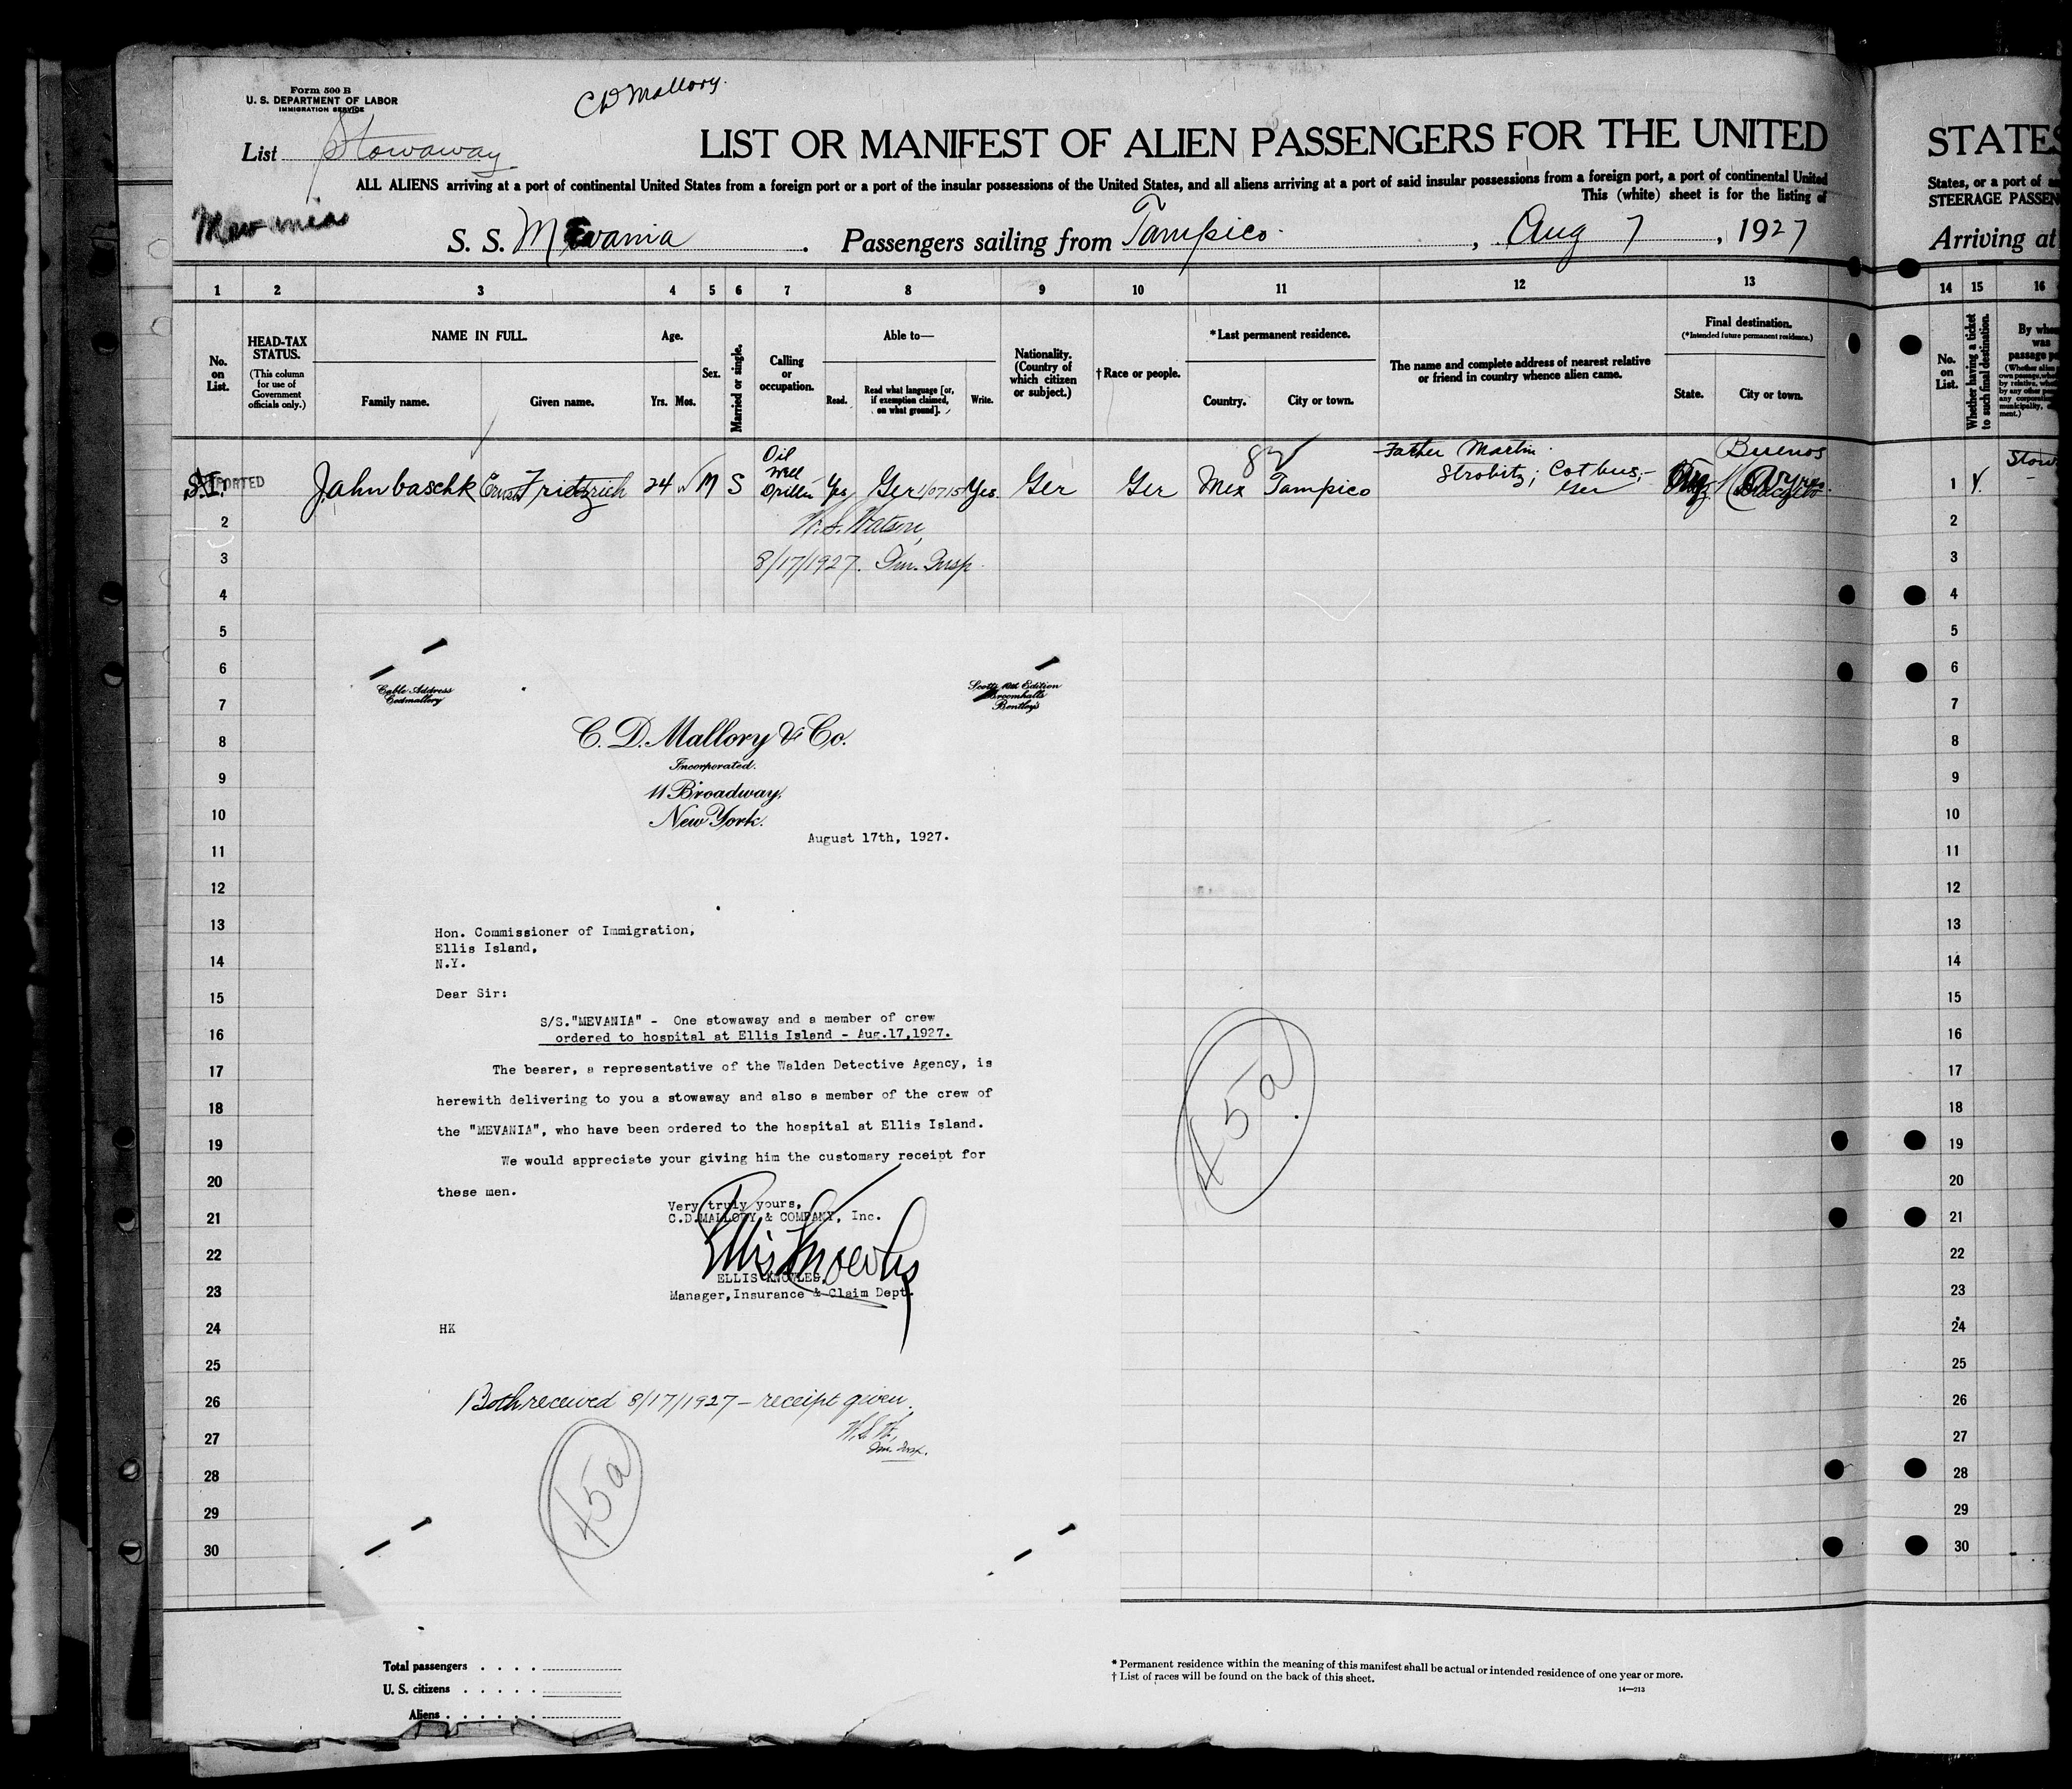 Form 500 B
U. S. DEPARTMENT OF LABOR
IMMIGRATION SERVICE
C D Mallory.
List Stowaway
LIST OR MANIFEST OF ALIEN PASSENGERS FOR THE UNITED
STATES
ALL ALIENS arriving at a port of continental United States from a foreign port or a port of the insular possessions of the United States, and all aliens arriving at a port of said insular possessions from a foreign port, a port of continental United
States, or a port of
This (white) sheet is for the listing of
STEERAGE PASSEN
Mevania
S. S. Mevania. Passengers sailing from Tampico, Aug 7, 1927
Arriving at
1 2 3 4 5 6 7 8 9 10 11 12 13
14 15 16
No. on List.
HEAD-TAX STATUS.
(This column for use of Government officials only.)
NAME IN FULL.
Family name. Given name.
Age.
Yrs. Mos.
Sex.
Married or single.
Calling or occupation.
Able to—
Read. Read what language [or, if exemption claimed, on what ground]. Write.
Nationality. (Country of which citizen or subject.)
† Race or people.
*Last permanent residence.
Country. City or town.
The name and complete address of nearest relative or friend in country whence alien came.
Final destination.
(*Intended future permanent residence.)
State. City or town.
No. on List.
Whether having a ticket to such final destination.
By whom was passage
DEPORTED
Jahnbaschk Ernst Friedrich 24 M S Oil Well Driller Yes Ger Yes Ger Ger Mex Tampico Father Martin Strobitz; Cotbus,- Ger Buenos Ayres
1
Stow
W. S. Watson,
8/17/1927. Im. Insp.
2
3
4
5
6
7
8
9
10
11
12
13
14
15
16
17
18
19
20
21
22
23
24
25
26
27
28
29
30
2
3
4
5
6
7
8
9
10
11
12
13
14
15
16
17
18
19
20
21
22
23
24
25
26
27
28
29
30
Cable Address
Cedmallory
Scotts 10th Edition
Broomhalls
Bentley's
C. D. Mallory & Co.
Incorporated.
11 Broadway,
New York.
August 17th, 1927.
Hon. Commissioner of Immigration,
Ellis Island,
N.Y.
Dear Sir:
S/S."MEVANIA" - One stowaway and a member of crew
ordered to hospital at Ellis Island - Aug.17,1927.
The bearer, a representative of the Walden Detective Agency, is
herewith delivering to you a stowaway and also a member of the crew of
the "MEVANIA", who have been ordered to the hospital at Ellis Island.
We would appreciate your giving him the customary receipt for
these men.
Very truly yours,
C.D.MALLORY & COMPANY, Inc.
Ellis Knowles
ELLIS KNOWLES,
Manager,Insurance & Claim Dept.
HK
Both received 8/17/1927 - receipt given.
W.S.W,
Im. Insp.
45a
45a
Total passengers
U. S. citizens
Aliens
* Permanent residence within the meaning of this manifest shall be actual or intended residence of one year or more.
† List of races will be found on the back of this sheet.
14—213